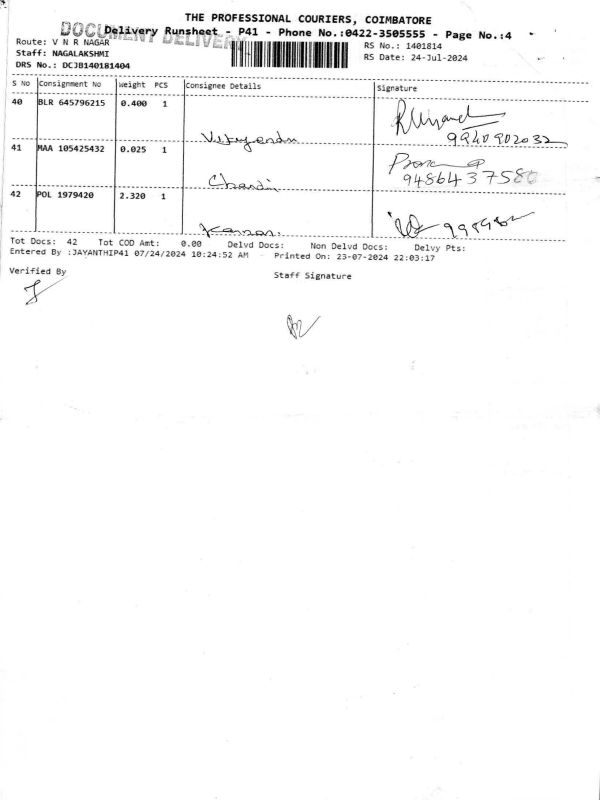 THE PROFESSIONAL COURIERS, COIMBATORE
DOCUMENT DELIVERY
Delivery Runsheet - P41 - Phone No.:0422-3505555 - Page No.:4
Route: V N R NAGAR RS No.: 1401814
Staff: NAGALAKSHMI RS Date: 24-Jul-2024
DRS No.: DCJB140181404
S No Consignment No Weight PCS Consignee Details Signature
40 BLR 645796215 0.400 1
9940902032
41 MAA 105425432 0.025 1
9486437580
42 POL 1979420 2.320 1
Kannan.
Tot Docs: 42 Tot COD Amt: 0.00 Delvd Docs: Non Delvd Docs: Delvy Pts:
Entered By :JAYANTHIP41 07/24/2024 10:24:52 AM Printed On: 23-07-2024 22:03:17
Verified By Staff Signature